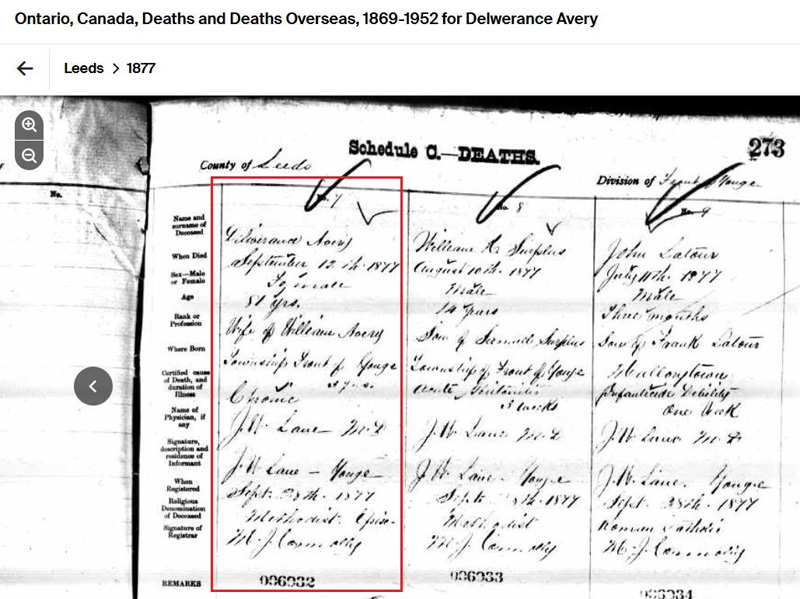 Ontario, Canada, Deaths and Deaths Overseas, 1869-1952 for Delwerance Avery
Leeds > 1877
Schedule C.—DEATHS.
273
County of Leeds
Division of Front of Yonge
No.
No. 7
No. 8
No. 9
Name and surname of Deceased
Deliverance Avery
William H. Surplus
John Latour
When Died
September 12th 1877
August 10th 1877
July 11th 1877
Sex—Male or Female
Female
Male
Male
Age
81 yrs.
14 years
Three months
Rank or Profession
Wife of William Avery
Son of Samuel Surplus
Son of Frank Latour
Where Born
Township Front of Yonge
Township of Front of Yonge
Mallorytown
Certified cause of Death, and duration of Illness
Chronic
3 weeks
Debility
One Week
Name of Physician, if any
J.W. Lane M.D
J.W. Lane M.D
J.W. Lane M.D
Signature, description and residence of Informant
J.W Lane - Yonge
J.W Lane - Yonge
J.W. Lane. Yonge
When Registered
Sept. 28th. 1877
Sept. 1877
Sept. 28th. 1877
Religious Denomination of Deceased
Methodist Epis.
Methodist
Roman Catholic
Signature of Registrar
M. J. Connolly
M. J. Connolly
M. J. Connolly
REMARKS
006032
006033
006034